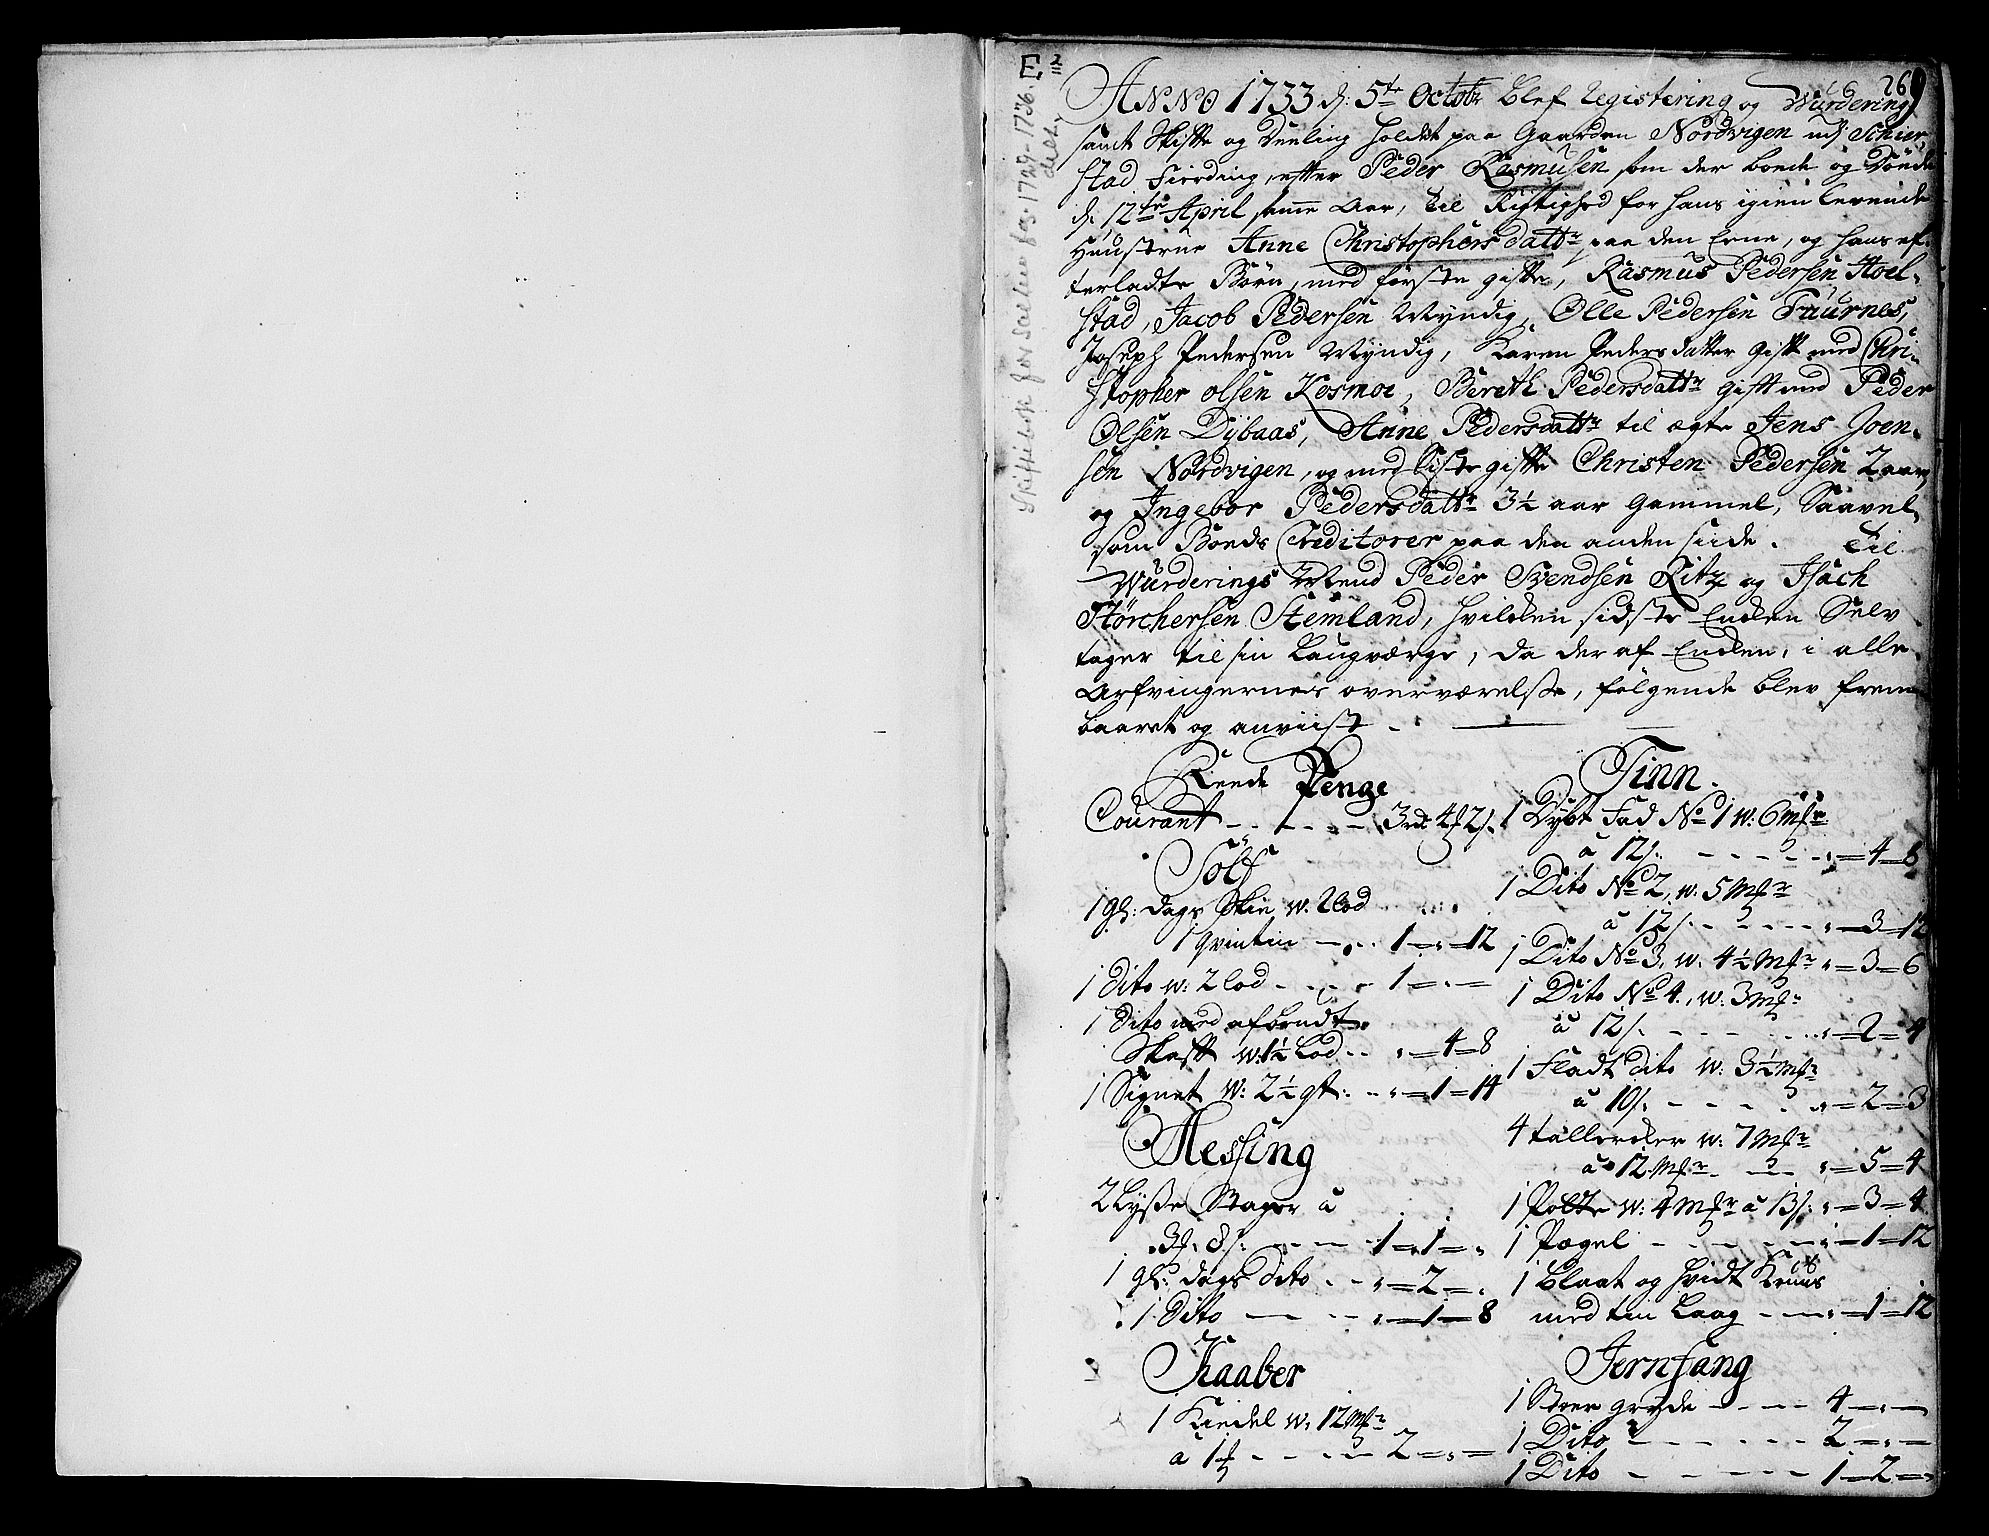 E.2
Skiftebok for Salten fog. 1729-1736.
269
ANNO 1733 d: 5te Octobr blef Registering og Wurdering
samt Skifte og Deeling holdet paa Gaarden Nordvigen udj Schier„
stad Fierding, efter Peder Rasmusen som der boede og Døede
d: 12te April samme Aar, til Rigtighed for hans igien levende
Haustrue Anne Christophersdattr paa den Eene, og hans ef„
terladte Børn, med første gifte, Rasmus Pedersen Hoel„
stad, Jacob Pedersen Myndig, Olle Pedersen Fuurnes,
Joseph Pedersen Myndig, Karen Pedersdatter gift med Chri„
stopher Olsen Kosmoe, Bereth Pedersdattr gift med Peder
Olsen Dybaas, Anne Pedersdattr til ægte Jens Joen„
sen Nordvigen, og med Siste gifte Christen Pedersen 2 aar
og Ingebor Pedersdattr 3½ aar gammel, Saavel„
som Boeds Creditorer paa den anden siide. Til
Wurderings Mend Peder Svendsen Ritz og Isach
Størchersen Stemland, hvilcken sidste Encken Selv
tager til sin Laugværge, da der af Encken, i alle
Arfvingernes overværelse, følgende blev frem„
baaret og anviist
Reede Penge
Courant - - - 3rd 4 2s.
Sølf
1 gl: dags Skie w: 2 lod
1 qvintin - - 1 - „ - 12
1 Dito w: 2 lod - - - 1 - „ -
1 Dito med afbrudt
Skaft w: 1½ Lod - - „ = 4 = 8
1 Signet w: 2½ qt: - - „ = 1 = 14
Messing
2 Lysse Stager à
3 8s: - - - 1 = 1 = „
1 gl: dags dito - - „ = 2 = „
1 Dito - - - „ = 1 = 8
Kaaber
1 Kiedel w: 12 mkr
à 1 - - - 2 = „ =
Tinn.
1 Dybt Fad No 1 w: 6 mkr
à 12s. - - - „ = 4 = 8
1 Dito No 2, w: 5 Mkr
à 12s. - - - „ = 3 = 12
1 Dito No 3, w: 4½ Mkr „ = 3 = 6
1 Dito No 4, w: 3 Mk
à 12s. - - - „ = 2 = 4
1 Fladt Dito w: 3½ Mkr
à 10s. - - - „ = 2 = 3
4 tallercker w: 7 Mkr
à 12 Mkr - - „ = 5 = 4
1 Potte w: 4 Mkr à 13s: „ = 3 = 4
1 Pægel - - - „ = 1 = 12
1 blaat og hvidt Kruus
med tin Laag - - „ = 1 = 12
Jernfang
1 Stoer gryde - - - 4 = „ =
1 Dito - - - 2 = „ =
1 Dito - - - 1 = 2 = „